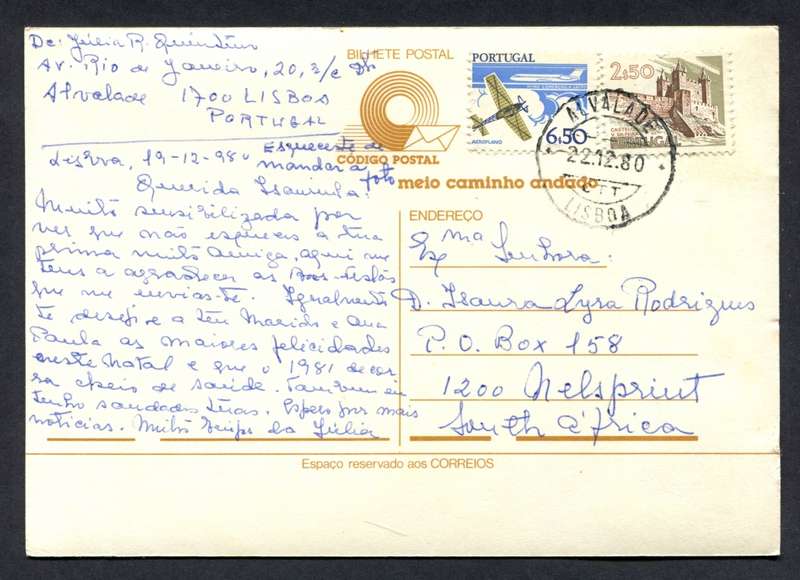 De: Júlia R. Quintino
Av. Rio de Janeiro, 20, 3/c
Alvalade 1700 LISBOA
PORTUGAL
Esqueceste de
mandar a
foto
Lisboa, 19-12-980
Querida Isaurinha:
Muito sensibilizada por
ver que não esqueces a tua
prima muito amiga, aqui me
tens a agradecer as Boas-Festas
que me envias-te. Igualmente
te desejo e a teu Marido e Ana
Paula as maiores felicidades
neste Natal e que o 1981 decor
ra cheio de saúde. Também eu
tenho saudades tuas. Espero por mais
notícias. Muito amiga da Júlia
BILHETE POSTAL
CÓDIGO POSTAL
meio caminho andado
PORTUGAL
AEROPLANO
6,50
2$50
ALVALADE
22.12.80
CTT
LISBOA
ENDEREÇO
Exma Senhora:
D. Isaura Lyra Rodrigues
P.O. Box 158
1200 Nelsprint
South África
Espaço reservado aos CORREIOS